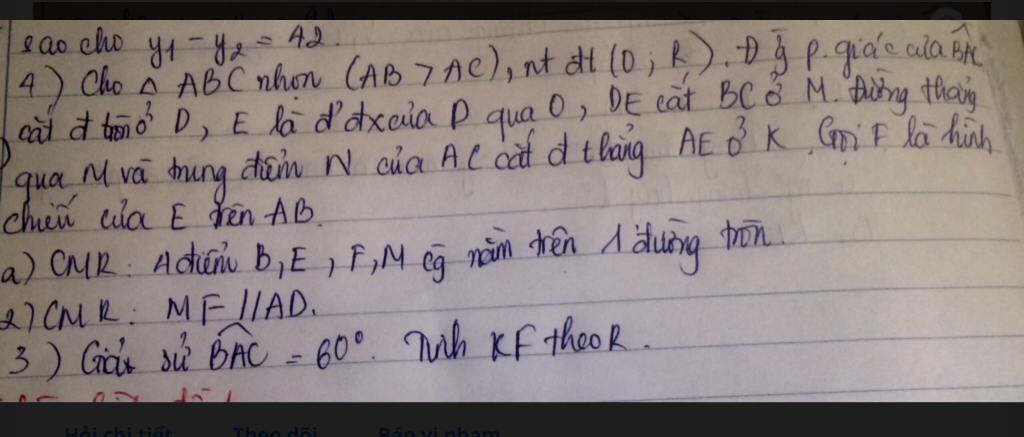 sao cho y1 - y2 = 42.
4) Cho △ ABC nhọn (AB > AC), nt đt (O; R). Đg p.giác của BAC
cắt đ tròn ở D, E là đ' đx của D qua O, DE cắt BC ở M. Đường thẳng
qua M và trung điểm N của AC cắt đ thẳng AE ở K. Gọi F là hình
chiếu của E trên AB.
a) CMR: 4 điểm B, E, F, M cg nằm trên 1 đường tròn.
2) CMR: MF // AD.
3) Giả sử BAC = 60°. Tính KF theo R.
Hỏi chi tiết Theo dõi Báo vi phạm